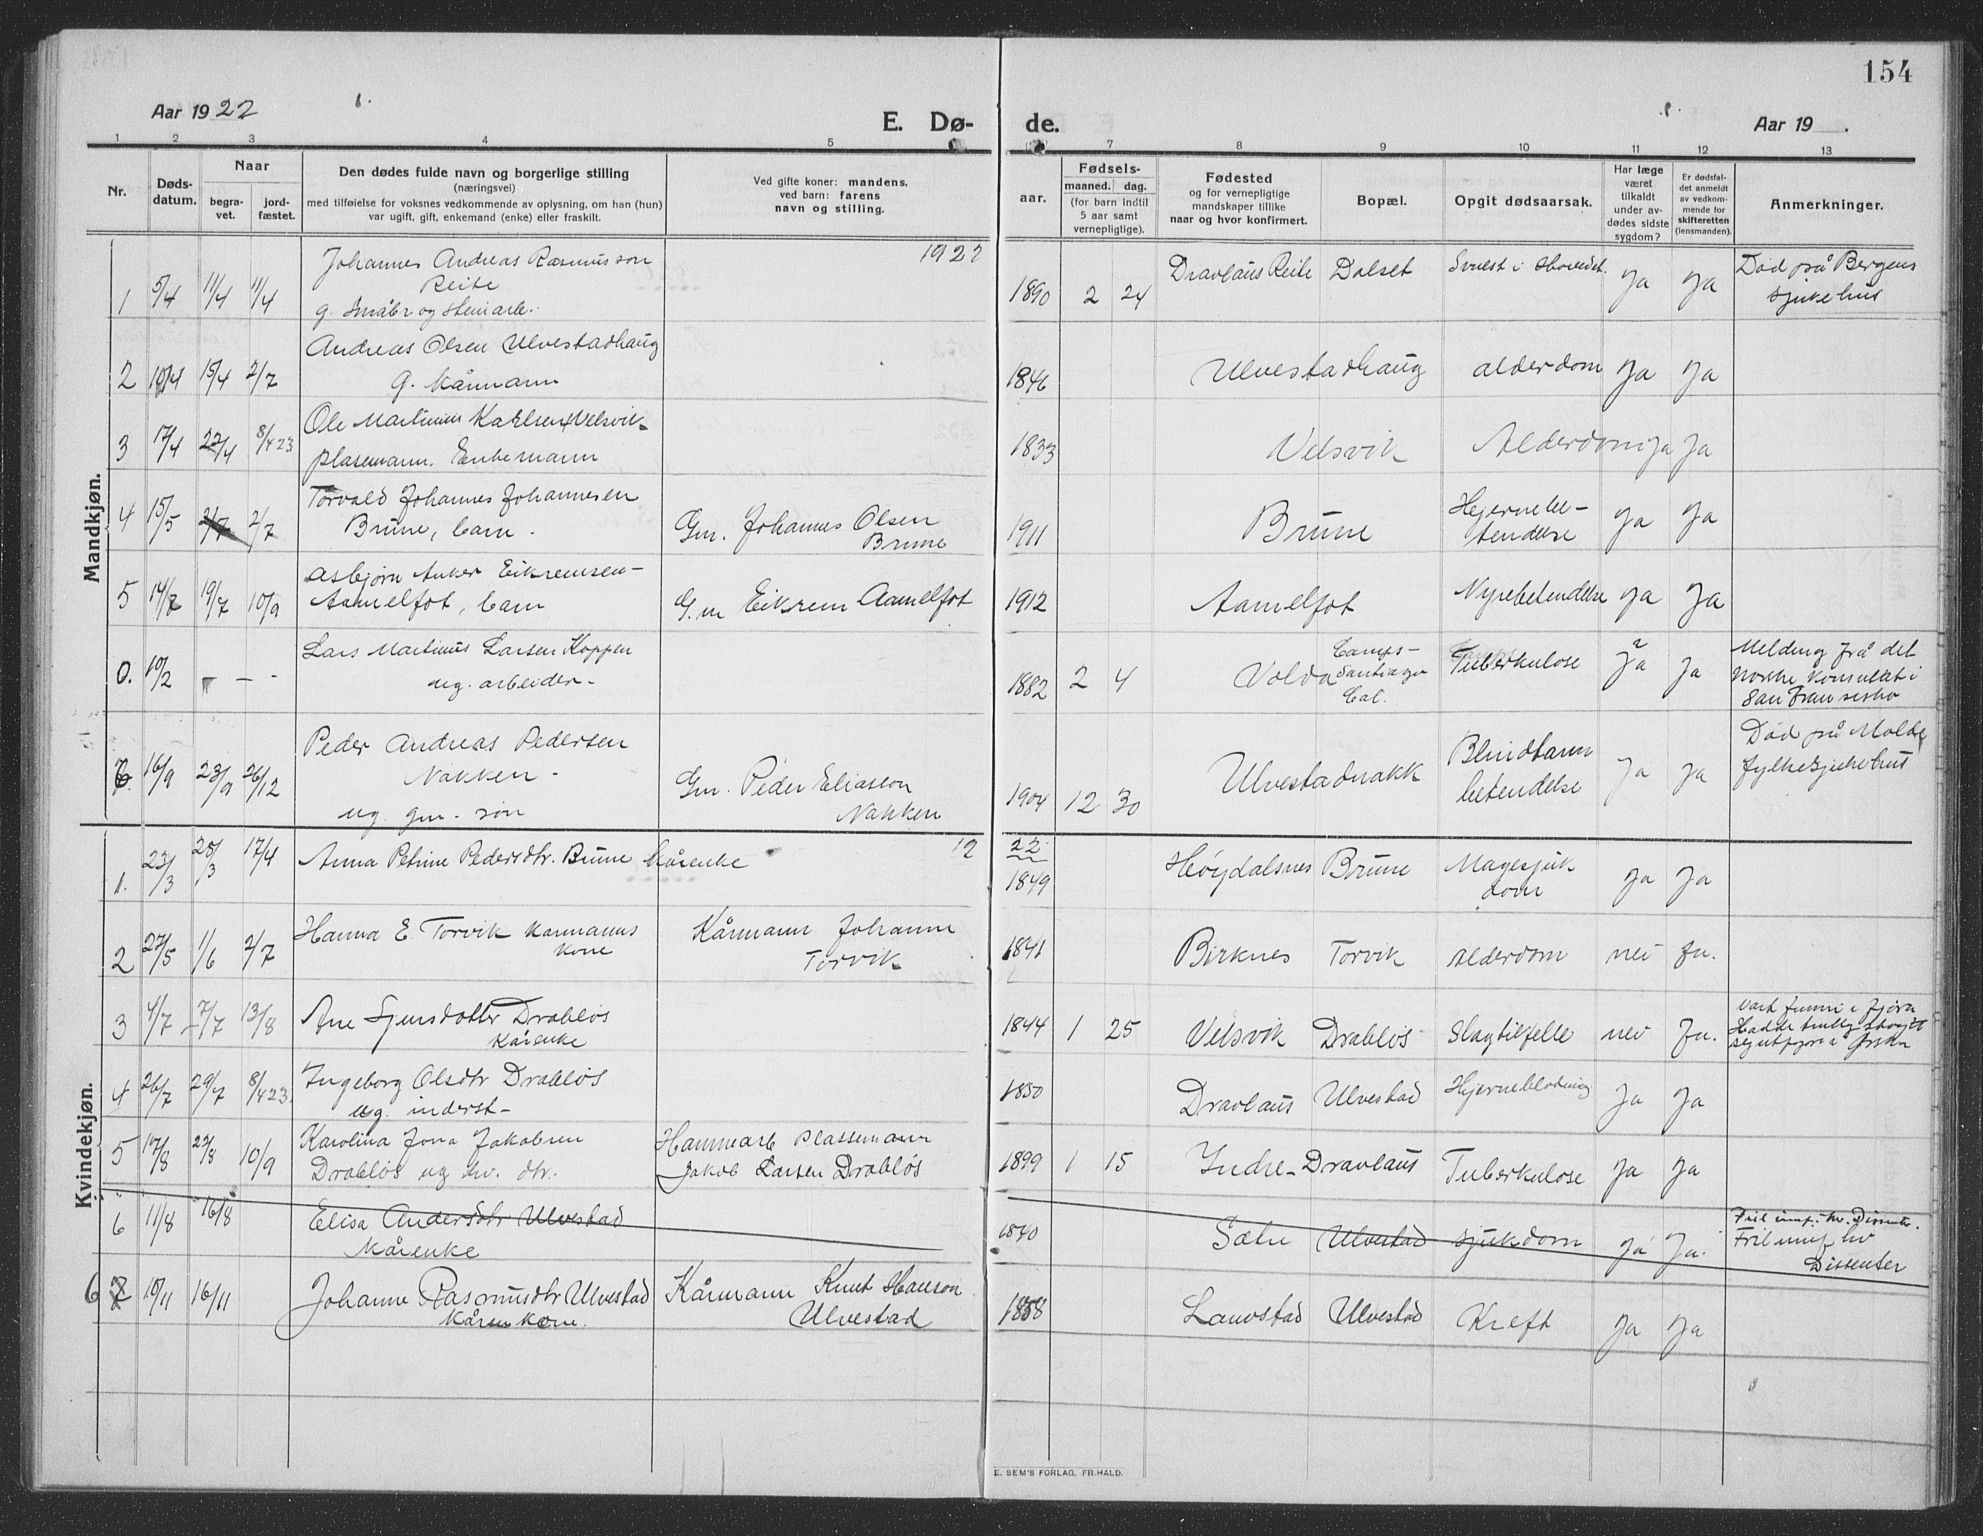 154
Aar 1922
E. Dø-
de.
Aar 19 .
1 2 3 4 5 7 8 9 10 11 12 13
Nr.
Døds-
datum.
Naar
begra-
vet.
jord-
fæstet.
Den dødes fulde navn og borgerlige stilling
(næringsvei)
med tilføielse for voksnes vedkommende av oplysning, om han (hun)
var ugift, gift, enkemand (enke) eller fraskilt.
Ved gifte koner: mandens,
ved barn: farens
navn og stilling.
aar.
Fødsels-
maaned. dag.
(for barn indtil
5 aar samt
vernepligtige).
Fødested
og for vernepligtige
mandskaper tillike
naar og hvor konfirmert.
Bopæl.
Opgit dødsaarsak.
Har læge
været
tilkaldt
under av-
dødes sidste
sygdom?
Er dødsfal-
det anmeldt
av vedkom-
mende for
skifteretten
(lensmanden).
Anmerkninger.
Mandkjøn.
1922
1 5/4 11/4 11/4
Johannes Andreas Rasmusson
Reite
g. Småbr og Steinarb.
1890 2 24 Dravlaus Reite Dalset i Hovedet Ja Ja
Død på Bergens
sjukehus
2 10/4 15/4 2/7
Andreas Olsen Ulvestadhaug
g. Kårmann
1846 Ulvestadhaug alderdom Ja Ja
3 17/4 22/4 8/4 23
Ole Martinus Karlsen Velsvik
plasemann. Enkemann
1833 Velsvik Alderdom Ja Ja
4 15/5 2/7 2/7
Torvald Johannes Johannesen
Brune, barn.
Gm. Johannes Olsen
Brune
1911 Brune
Hjernebe-
tendelse
Ja Ja
5 14/7 19/7 10/9
Asbjørn Anker Eikremsen-
Aamelfot, barn
G.m Eikrem Aamelfot
1912 Aamelfot Nyrebetendelse Ja Ja
0. 10/2 - - -
Lars Martinus Larsen Koppen
ug. arbeider-
1882 2 4 Volda
Camps-
Santiago
Cal.
Tuberkulose Ja Ja
Melding frå det
norske konsulat i
San Fransisko
6. 16/9 23/9 26/12
Peder Andreas Pedersen
Nakken-
ug. gm. søn
Gm. Peder Eliasson
Nakken
1904 12 30 Ulvestadnakk
Blindtarm
betendelse
Ja Ja
Død på Molde
fylkesjukehus
Kvindekjøn.
19 22
1. 23/3 25/3 17/4
Anna Petrine Pedersdtr. Brune Kårenke
1849 Høydalsnes Brune
Magesjuk
dom
Ja Ja
2 27/5 1/6 2/7
Hanna E. Torvik Kårmanns
kone
Kårmann Johann
Torvik
1841 Birknes Torvik alderdom nei Ja.
3 4/7 7/7 13/8
Ane Sjursdotter Drabløs
Kårenke
1844 1 25 Velsvik Drabløs Slagtilfelle nei Ja.
4 26/7 29/7 8/4 23.
Ingeborg Olsdtr Drabløs
ug. inderst-
1850 Dravlaus Ulvestad Hjerneblødning Ja Ja
5 17/8 22/8 10/9
Karolina Jona Jakobsen
Drabløs ug hv. dtr.
Hannearb plassemann
Jakob Larsen Drabløs
1899 1 15 Indre-Dravlaus Tuberkulose Ja Ja
6 11/8 16/8
Elisa Andersdtr Ulvestad
Kårenke
1840 Sætre Ulvestad sjukdom Ja Ja.
Dissenter
6 10/11 16/11
Johanne Rasmusdtr Ulvestad
kårenkone.
Kårmann Knut Hanson
Ulvestad
1858 Lauvstad Ulvestad Kreft Ja Ja
E. SEM'S FORLAG, FR.HALD.